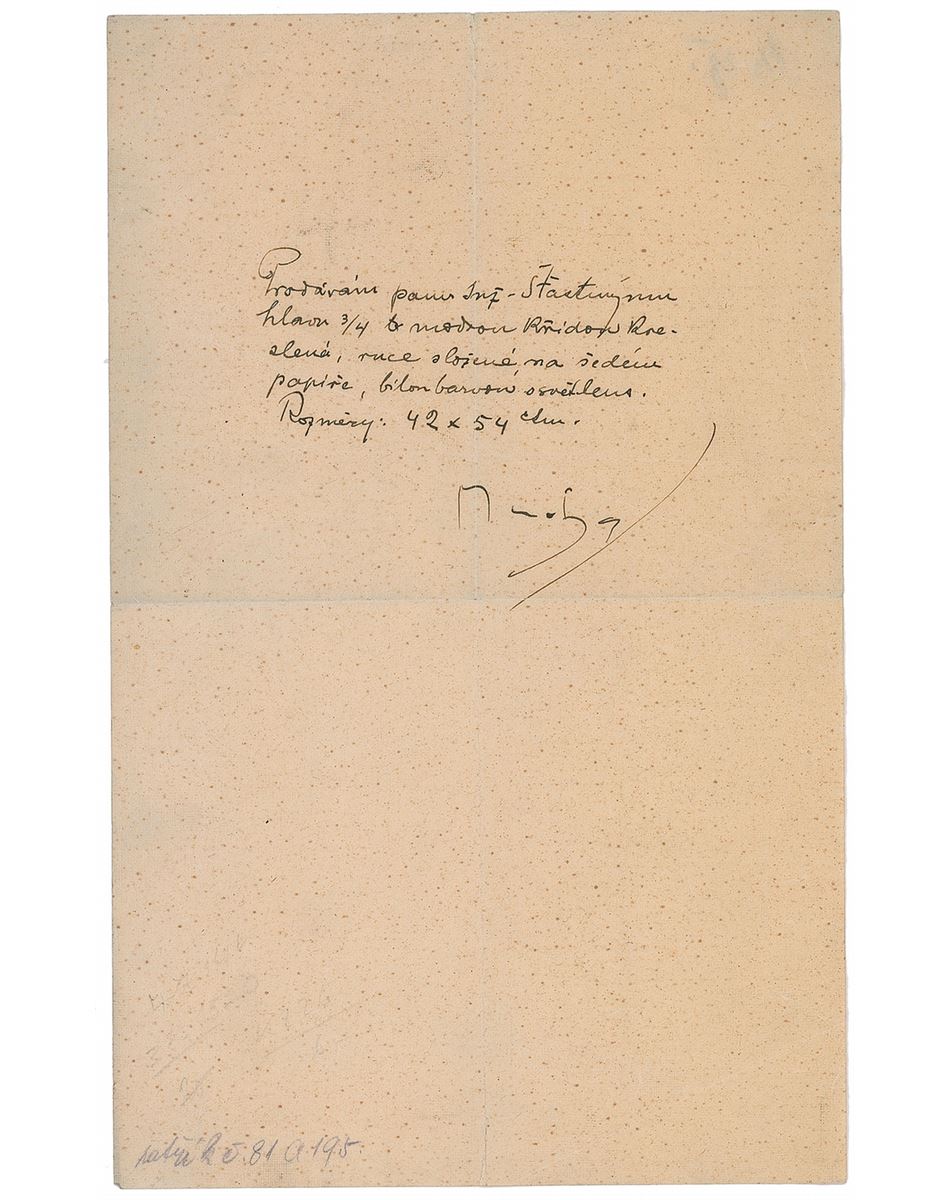 Prodávám panu Inž. Šťastnýmu
hlavu 3/4 modrou křídou kre-
slená, ruce složené, na šedém
papíře, bílou barvou osvětleno.
Rozměry: 42 x 54 ctm.
Mucha
č. 81 a 195.